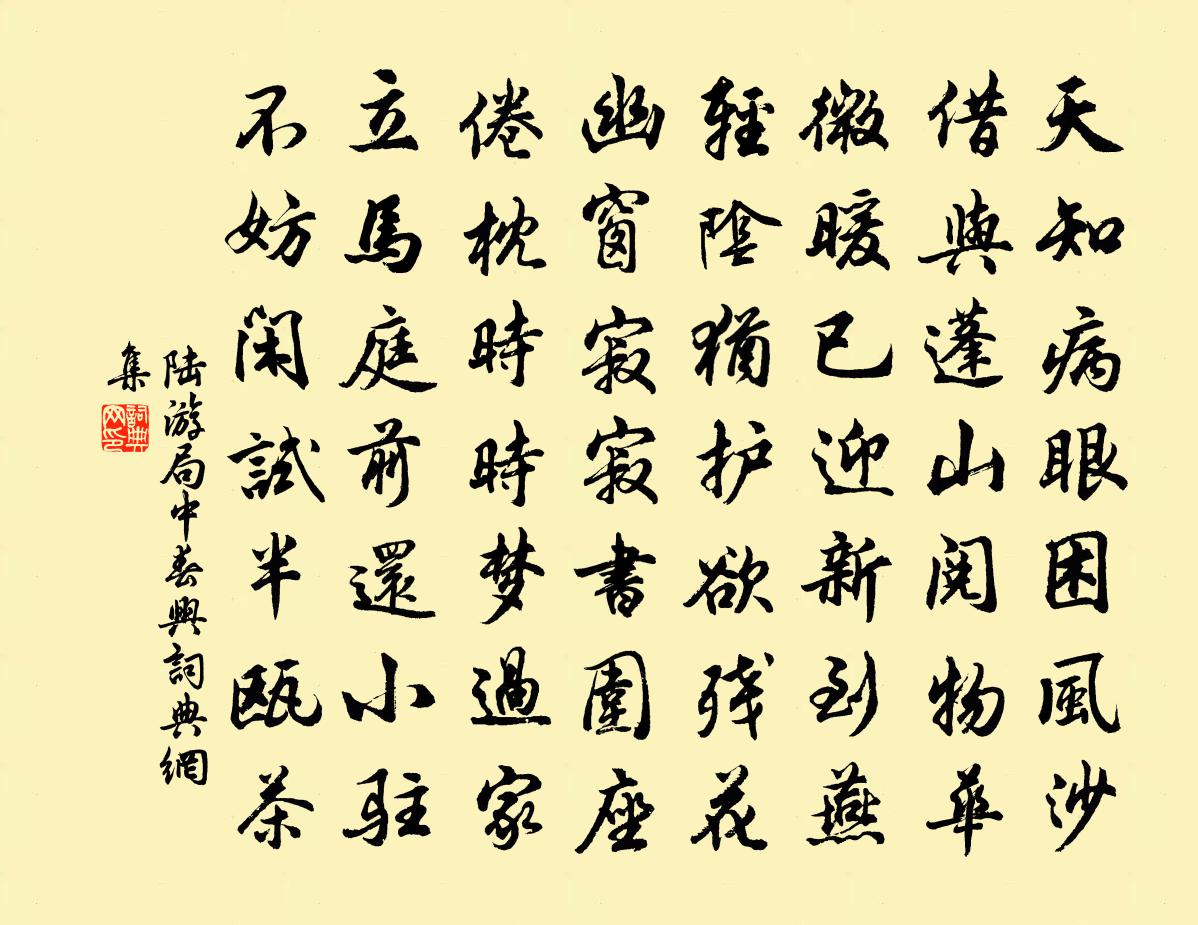 天知病眼困風沙
借與蓬山閱物華
微暖已迎新到燕
輕陰猶护欲殘花
幽窗寂寂書圍座
倦枕時時梦過家
立馬庭前還小駐
不妨闲試半甌茶
陆游局中春興詞典網
集
詞典
网印